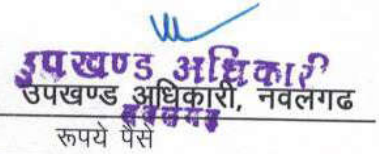 उपखण्ड अधिकारी
उपखण्ड अधिकारी, नवलगढ
नवलगढ
रूपये पैसे